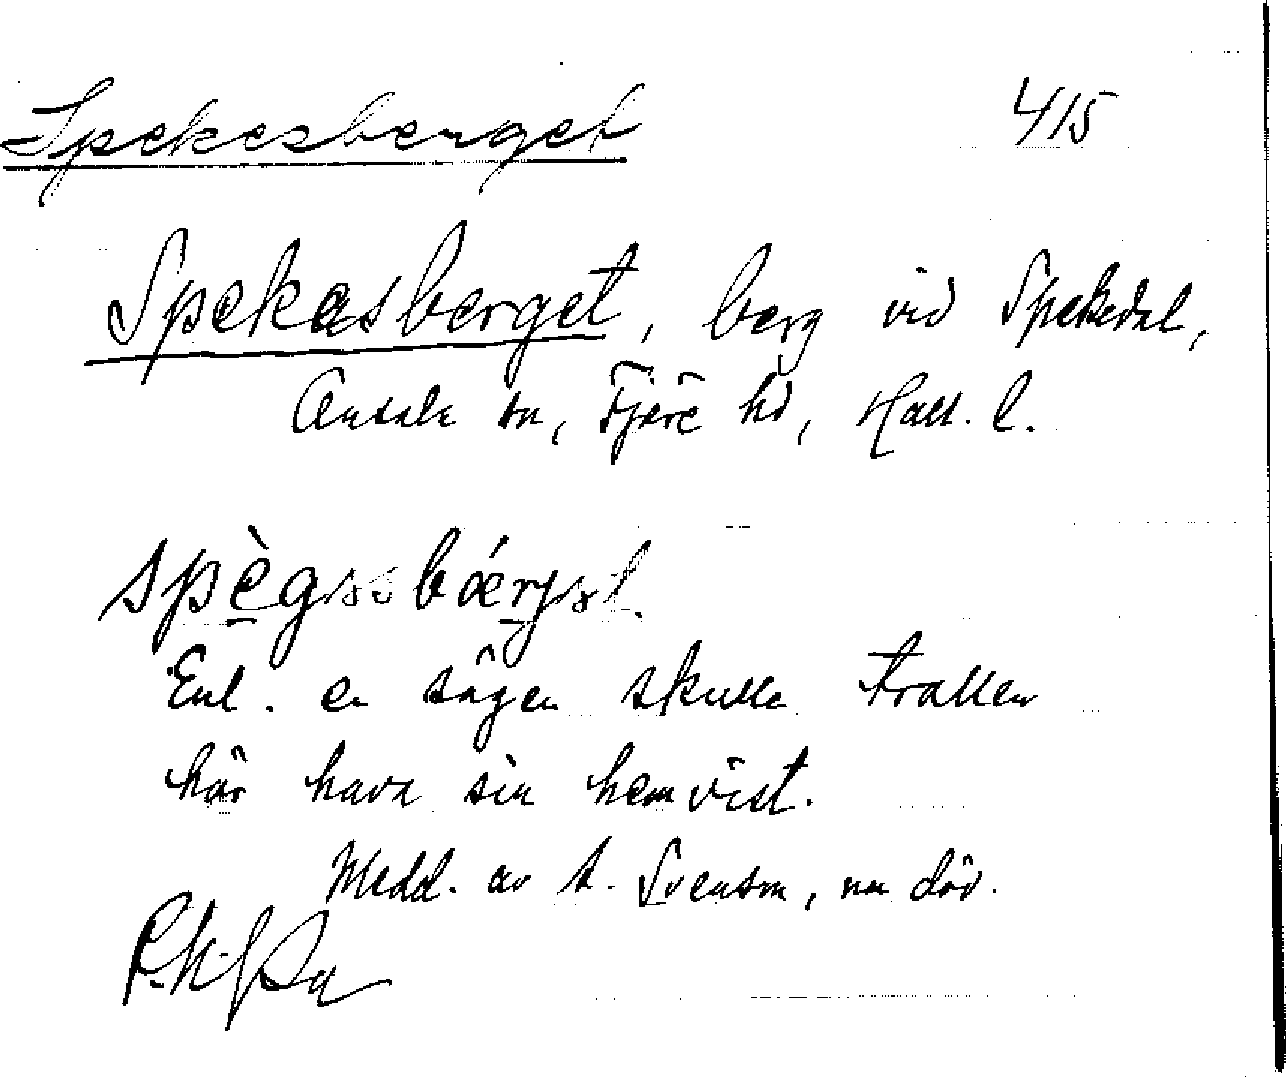 Spekesberget 415
Spekasberget, berg vid Spekedal,
Onsala sn, Fjäre hd, Hall. l.
Enl. en sägen skulle trollen
här hava sin hemvist.
Medd. av A. Svenson, nu död.